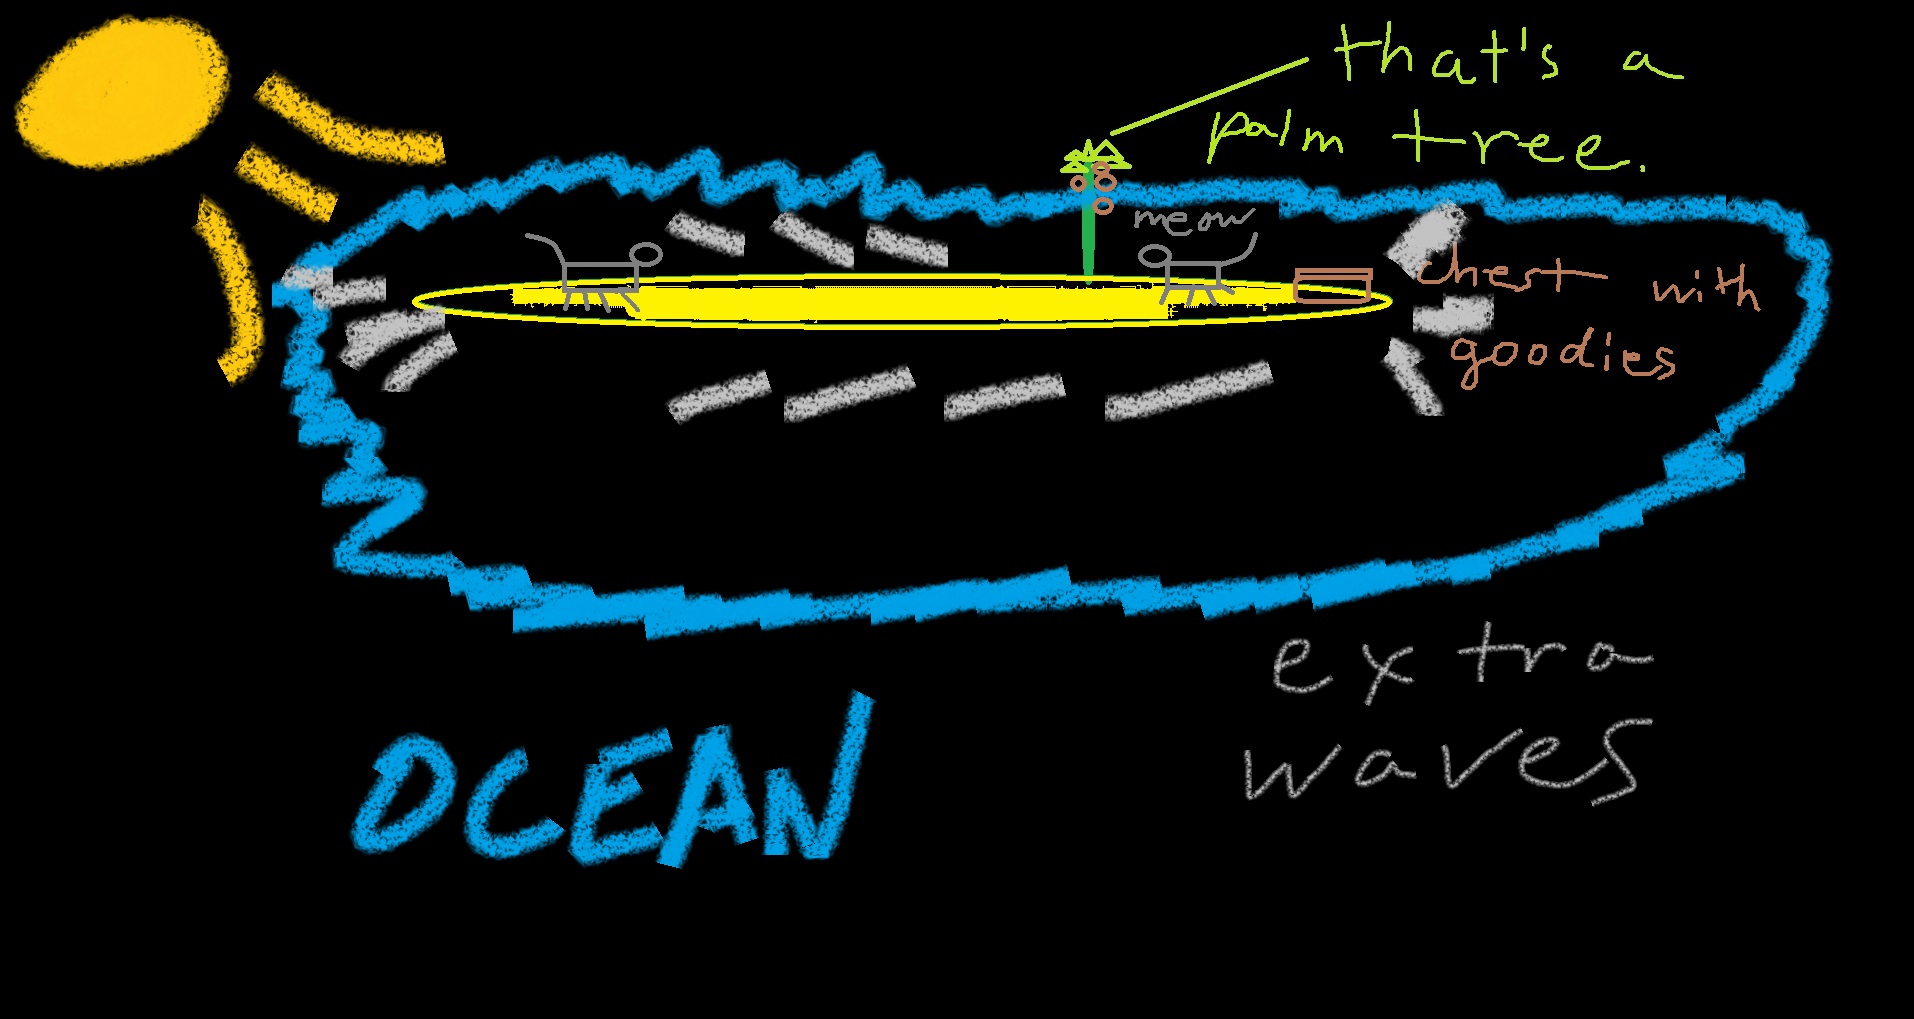 that's a
palm tree.
meow
chest with
goodies
extra
waves
OCEAN